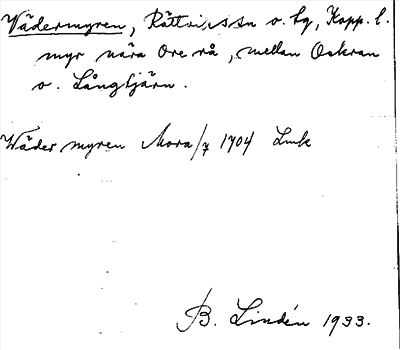 Vädermyren, Rättviks sn o. tg, Kopp. l.
myr nära Ore rå, mellan Oakran
o. Långtjärn.
Wäder myren Mora/7 1704 Lmk
B. Lindén 1933.